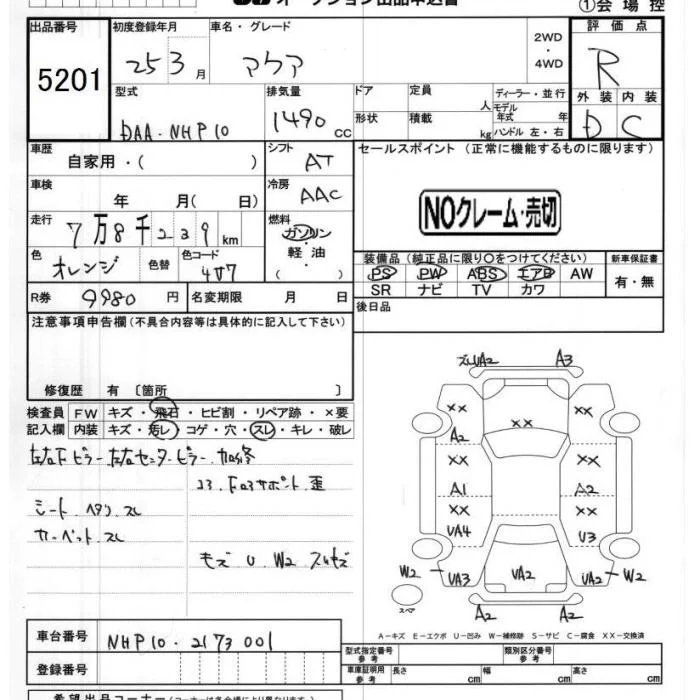 オークション出品申込書
①会場控
出品番号 初度登録年月 車名・グレード 評価点
5201 25 3月 アクア 2WD・4WD R
型式 排気量 ドア 定員 人 ディーラー・並行 外装 内装
DAA-NHP10 1490cc 形状 積載 kg モデル年式 年 ハンドル 左・右 D C
車歴 自家用・( ) シフト AT セールスポイント (正常に機能するものに限ります)
車検 年 月( 日) 冷房 AAC
NOクレーム・売切
走行 7万8千239km 燃料 ガソリン・軽油・( )
色 オレンジ 色替 色コード 装備品 (純正品に限り○をつけてください) 新車保証書
PS PW ABS エアB AW 有・無
SR ナビ TV カワ
R券 9980円 名変期限 月 日 後日品
注意事項申告欄(不具合内容等は具体的に記入して下さい)
修復歴 有〔箇所 〕
検査員 FW キズ・飛石・ヒビ割・リペア跡・×要
記入欄 内装 キズ・汚レ・コゲ・穴・スレ・キレ・破レ
左右Fピラー 左右センターピラー 加修
コアサポート 歪
シート ヘタリ スレ
カーペット スレ
キズ U W2 スリキズ
UA2 A3
XX XX XX
A2
XX XX
A1 A2
XX XX
UA4 U3
W2 UA3 UA2 UA2 W2
スペア A2 A2
A-キズ E-エクボ U-凹み W-補修跡 S-サビ C-腐食 XX-交換済
車台番号 NHP10-2173001
型式指定番号 参考 類別区分番号 参考
登録番号 車庫証明用 参考 長さ cm 幅 cm 高さ cm
希望出品コーナー(コーナーは各会場により異なります)